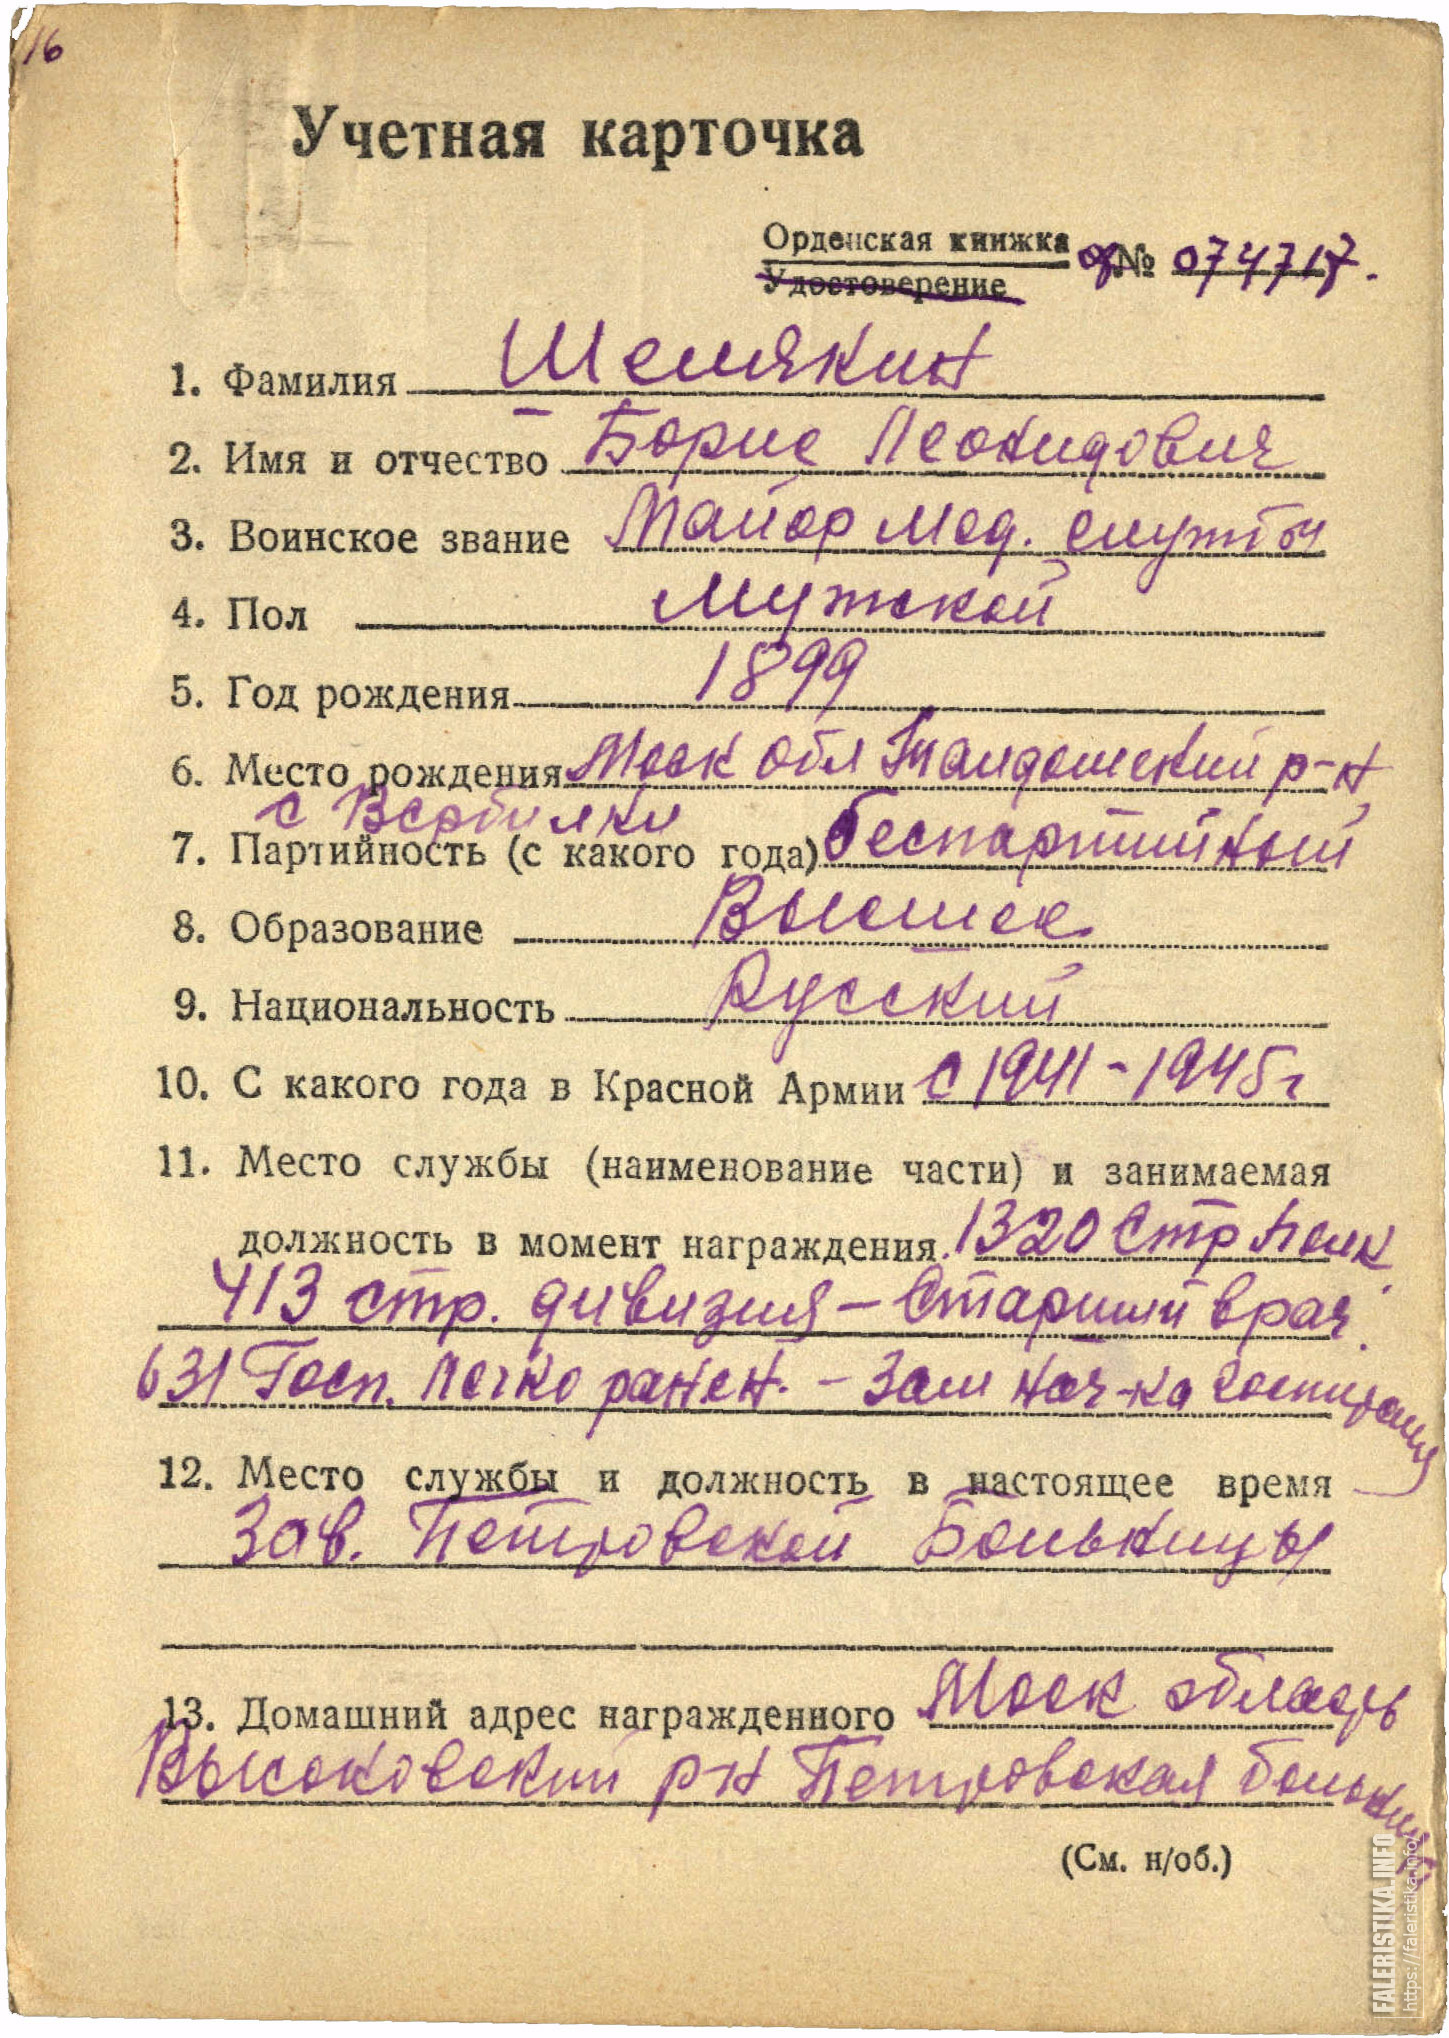 16
Учетная карточка
Орденская книжка № 074717.
Удостоверение
1. Фамилия Шемякин
2. Имя и отчество Борис Леонидович
3. Воинское звание Майор мед. службы
4. Пол Мужской
5. Год рождения 1899
6. Место рождения Моск обл Талдомский р-н
с Вербилки
7. Партийность (с какого года) беспартийный
8. Образование Высшее
9. Национальность Русский
10. С какого года в Красной Армии с 1941-1945г
11. Место службы (наименование части) и занимаемая
должность в момент награждения 1320 Стр Полк
413 стр. дивизия - Старший врач.
631 Госп. Легко ранен. - Зам нач-ка госпиталя
12. Место службы и должность в настоящее время
Зав. Петровской Больницы
13. Домашний адрес награжденного Моск область
Высоковский р-н Петровская больница
(См. н/об.)
FALERISTIKA.INFO
https://faleristika.info